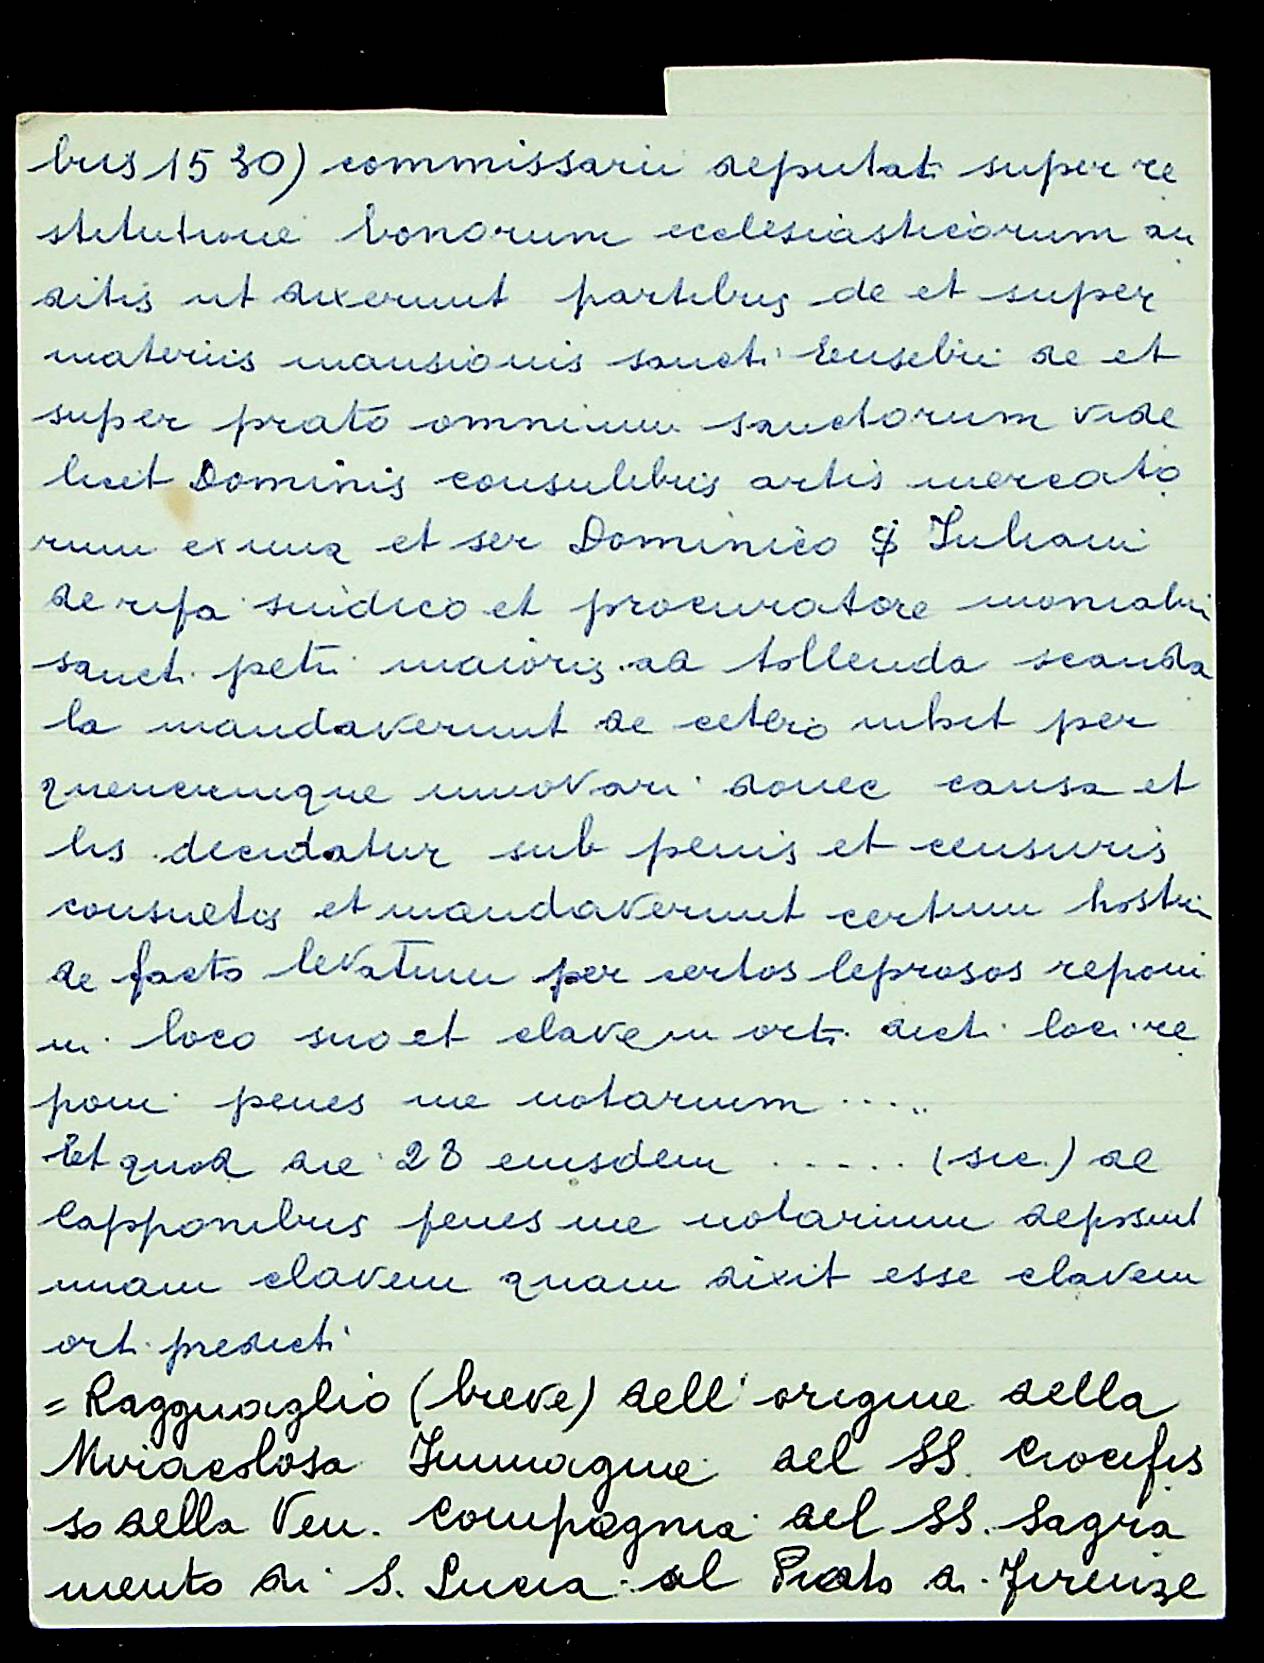 bus 1530) commissarii deputati super re
stitutione bonorum ecclesiasticorum au
ditis ut dixerunt partibus de et super
materiis mansionis sancti Eusebii de et
super prato omnium sanctorum vide
licet Dominis consulibus artis mercato
rum ex una et ser Dominico Iuliani
de ripa sindico et procuratore monialium
sancti petri maioris ad tollenda scanda
la mandaverunt de cetero nihil per
quemcumque innovari donec causa et
lis decidatur sub penis et censuris
consuetis et mandaverunt certum hostium
de facto levatum per certos leprosos reponi
in loco suo et clavem orti dicti loci re
poni penes me notarium .....
Et quod die 23 eiusdem ..... (sic.) de
Capponibus penes me notarium deposuit
unam clavem quam dixit esse clavem
orti predicti
= Ragguaglio (breve) dell'origine della
Miracolosa Immagine del SS. Crocifis
so della Ven. Compagnia del SS. Sagra
mento di S. Lucia al Prato di Firenze